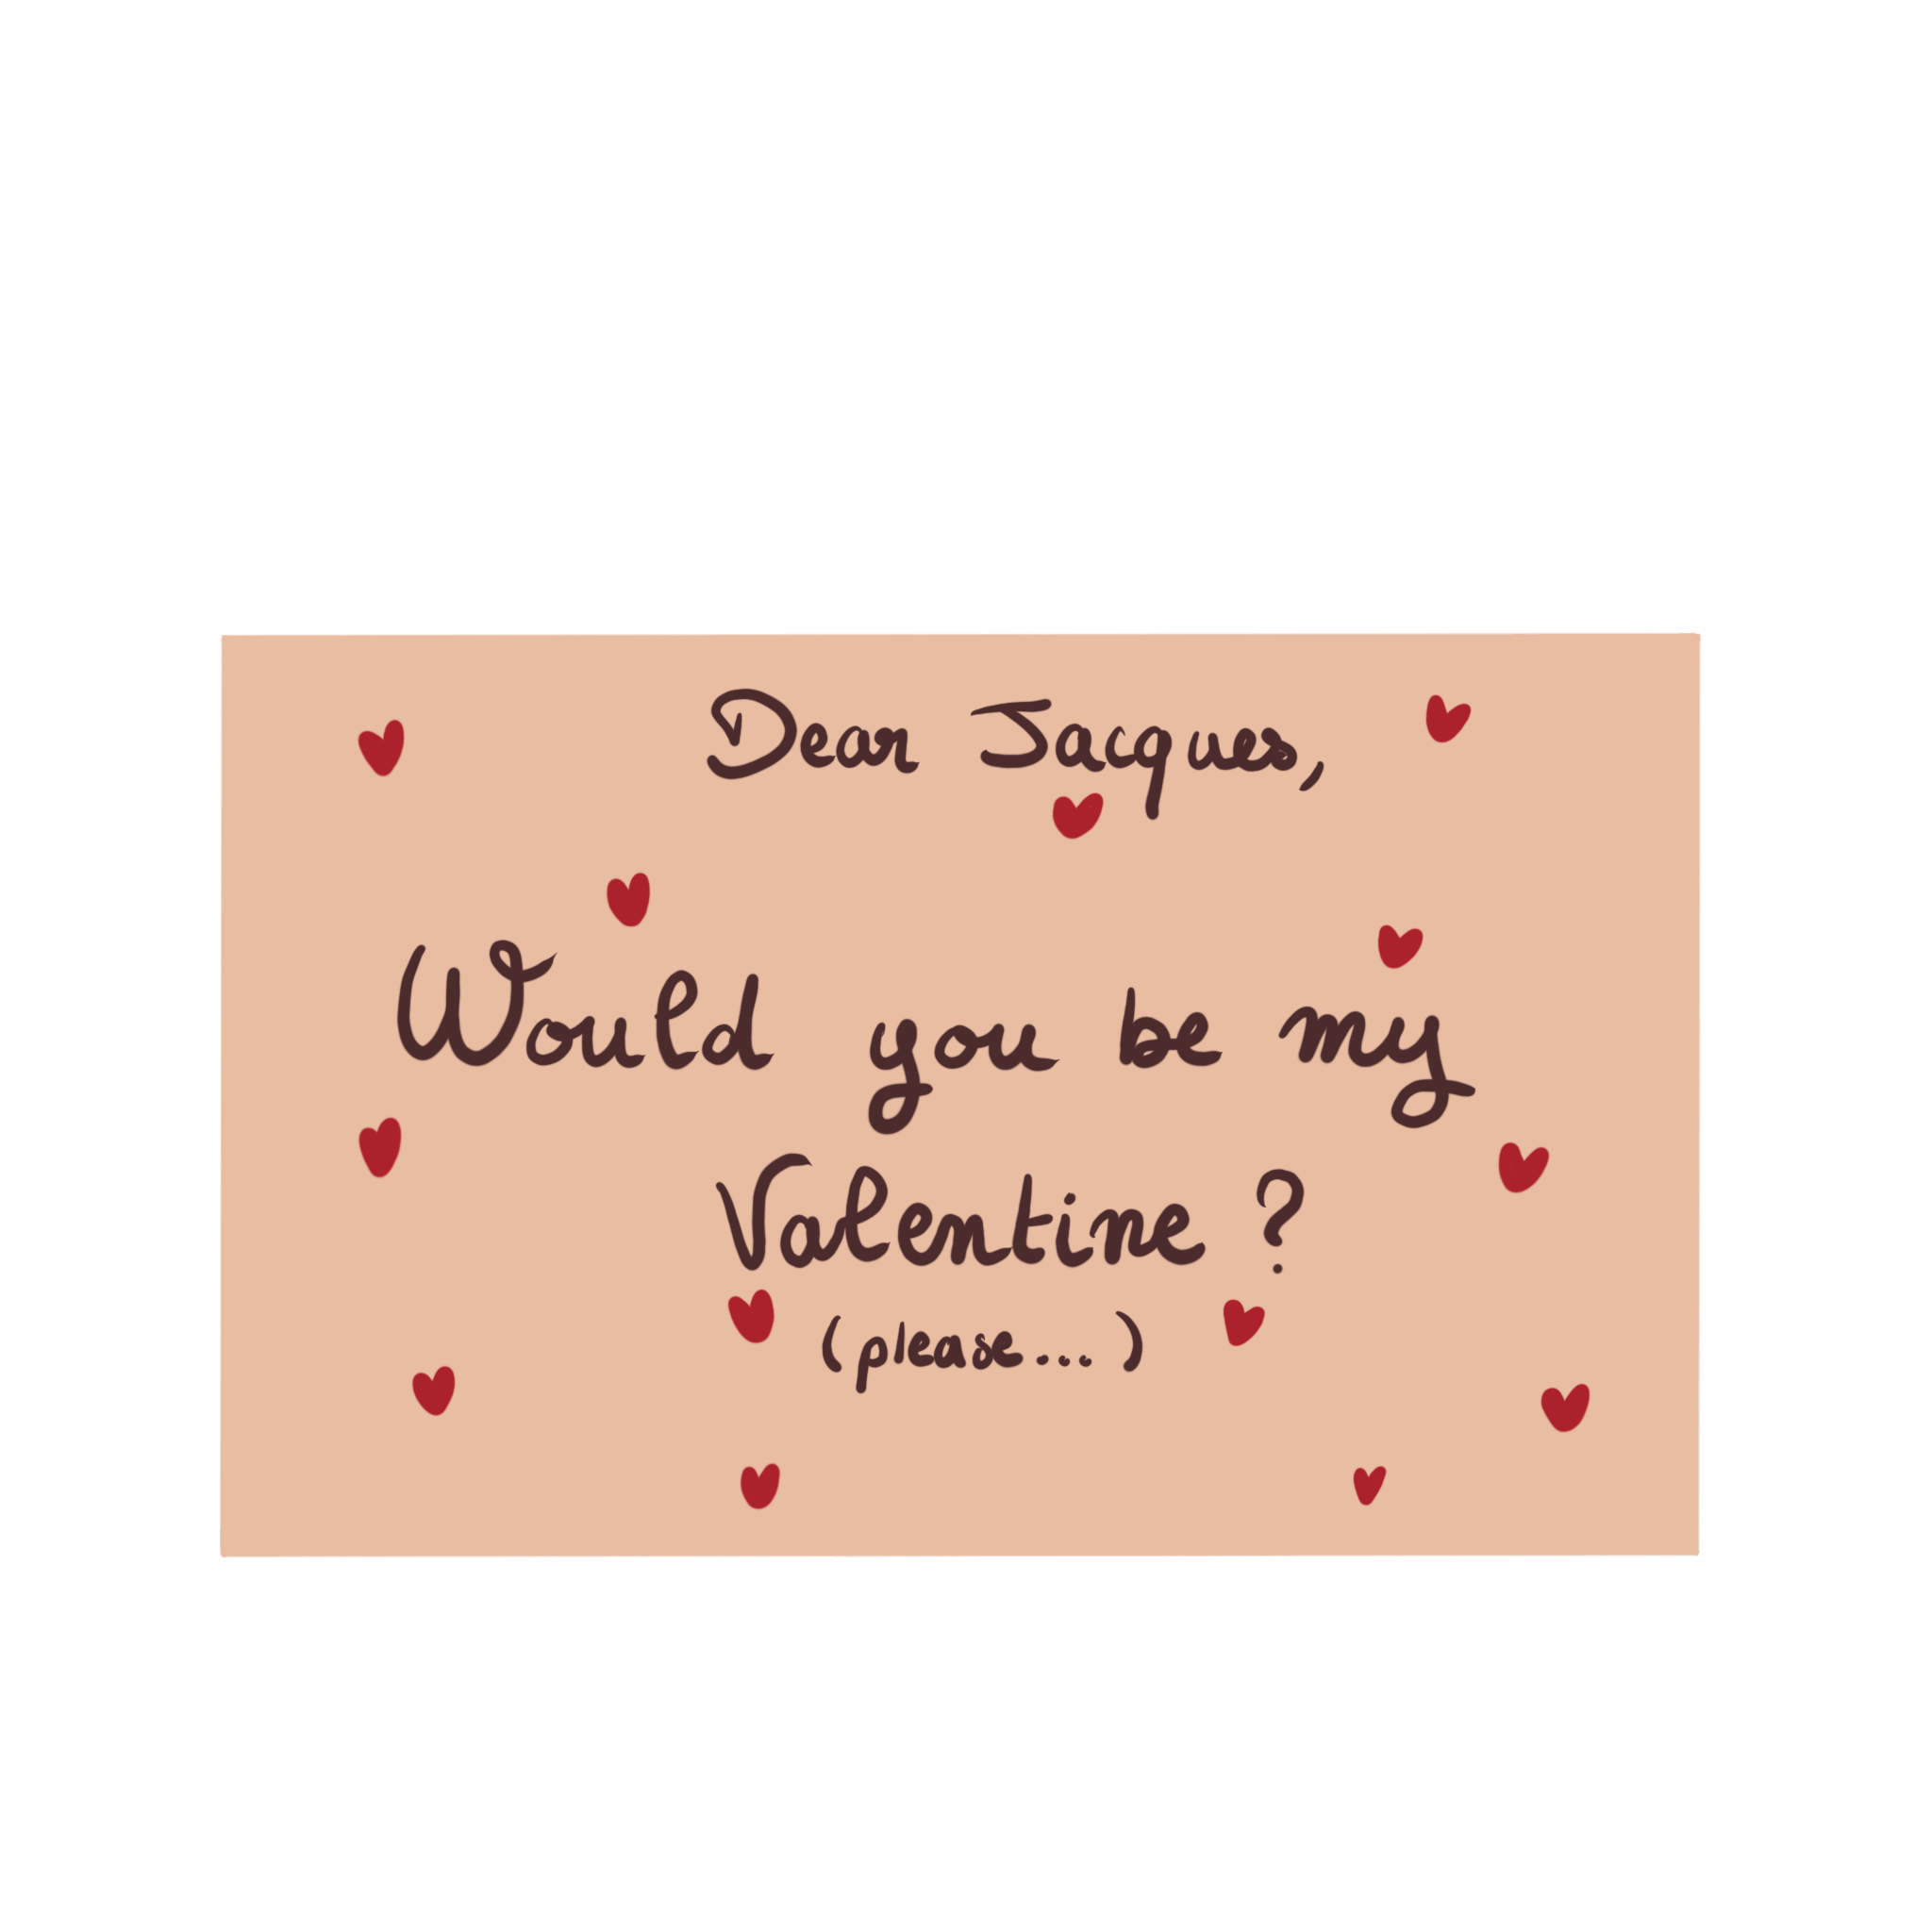 Dear Jacques,
Would you be my
Valentine ?
(please...)